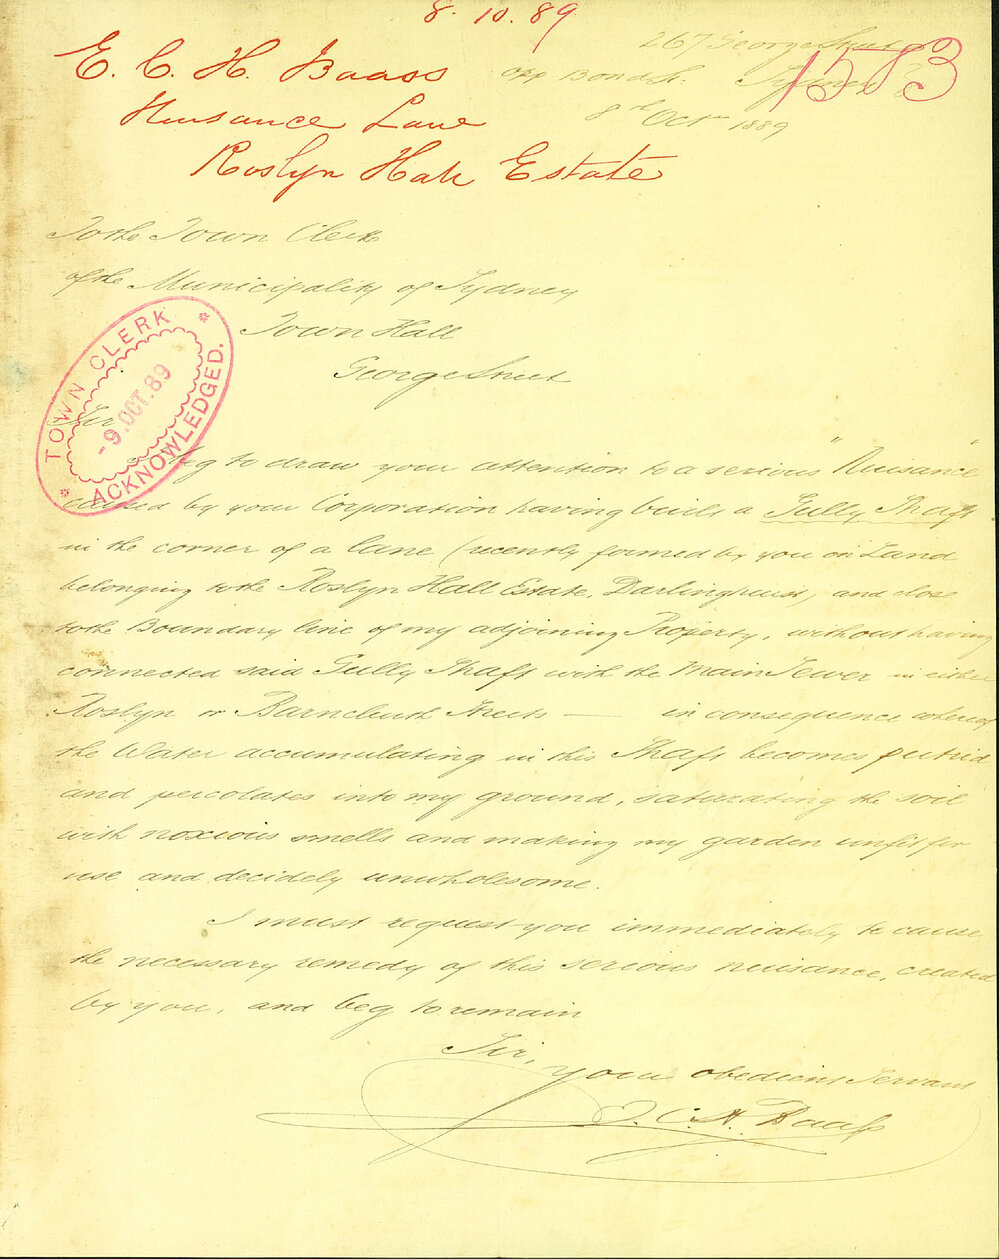 8. 10. 89
1583
E. C. H. Baass
Nuisance Lane
Roslyn Hall Estate
267 George Street
opp Bond St. Sydney
8th Octr 1889
To the Town Clerk
of the Municipality of Sydney
Town Hall
George Street
TOWN CLERK
-9. OCT. 89
ACKNOWLEDGED.
Sir
I beg to draw your attention to a serious "Nuisance"
caused by your Corporation having built a Gully Shaft
in the corner of a lane (recently formed by you on Land
belonging to the Roslyn Hall Estate, Darlinghurst, and close
to the Boundary line of my adjoining Property, without having
connected said Gully Shaft with the Main Sewer in either
Roslyn or Barncleuth Streets — in consequence whereof
the Water accumulating in this Shaft becomes putrid
and percolates into my ground, saturating the soil
with noxious smells and making my garden unfit for
use and decidely unwholesome.
I must request you immediately to cause
the necessary remedy of this serious nuisance, created
by you, and beg to remain
Sir,
your obedient Servant
C. H. Baass